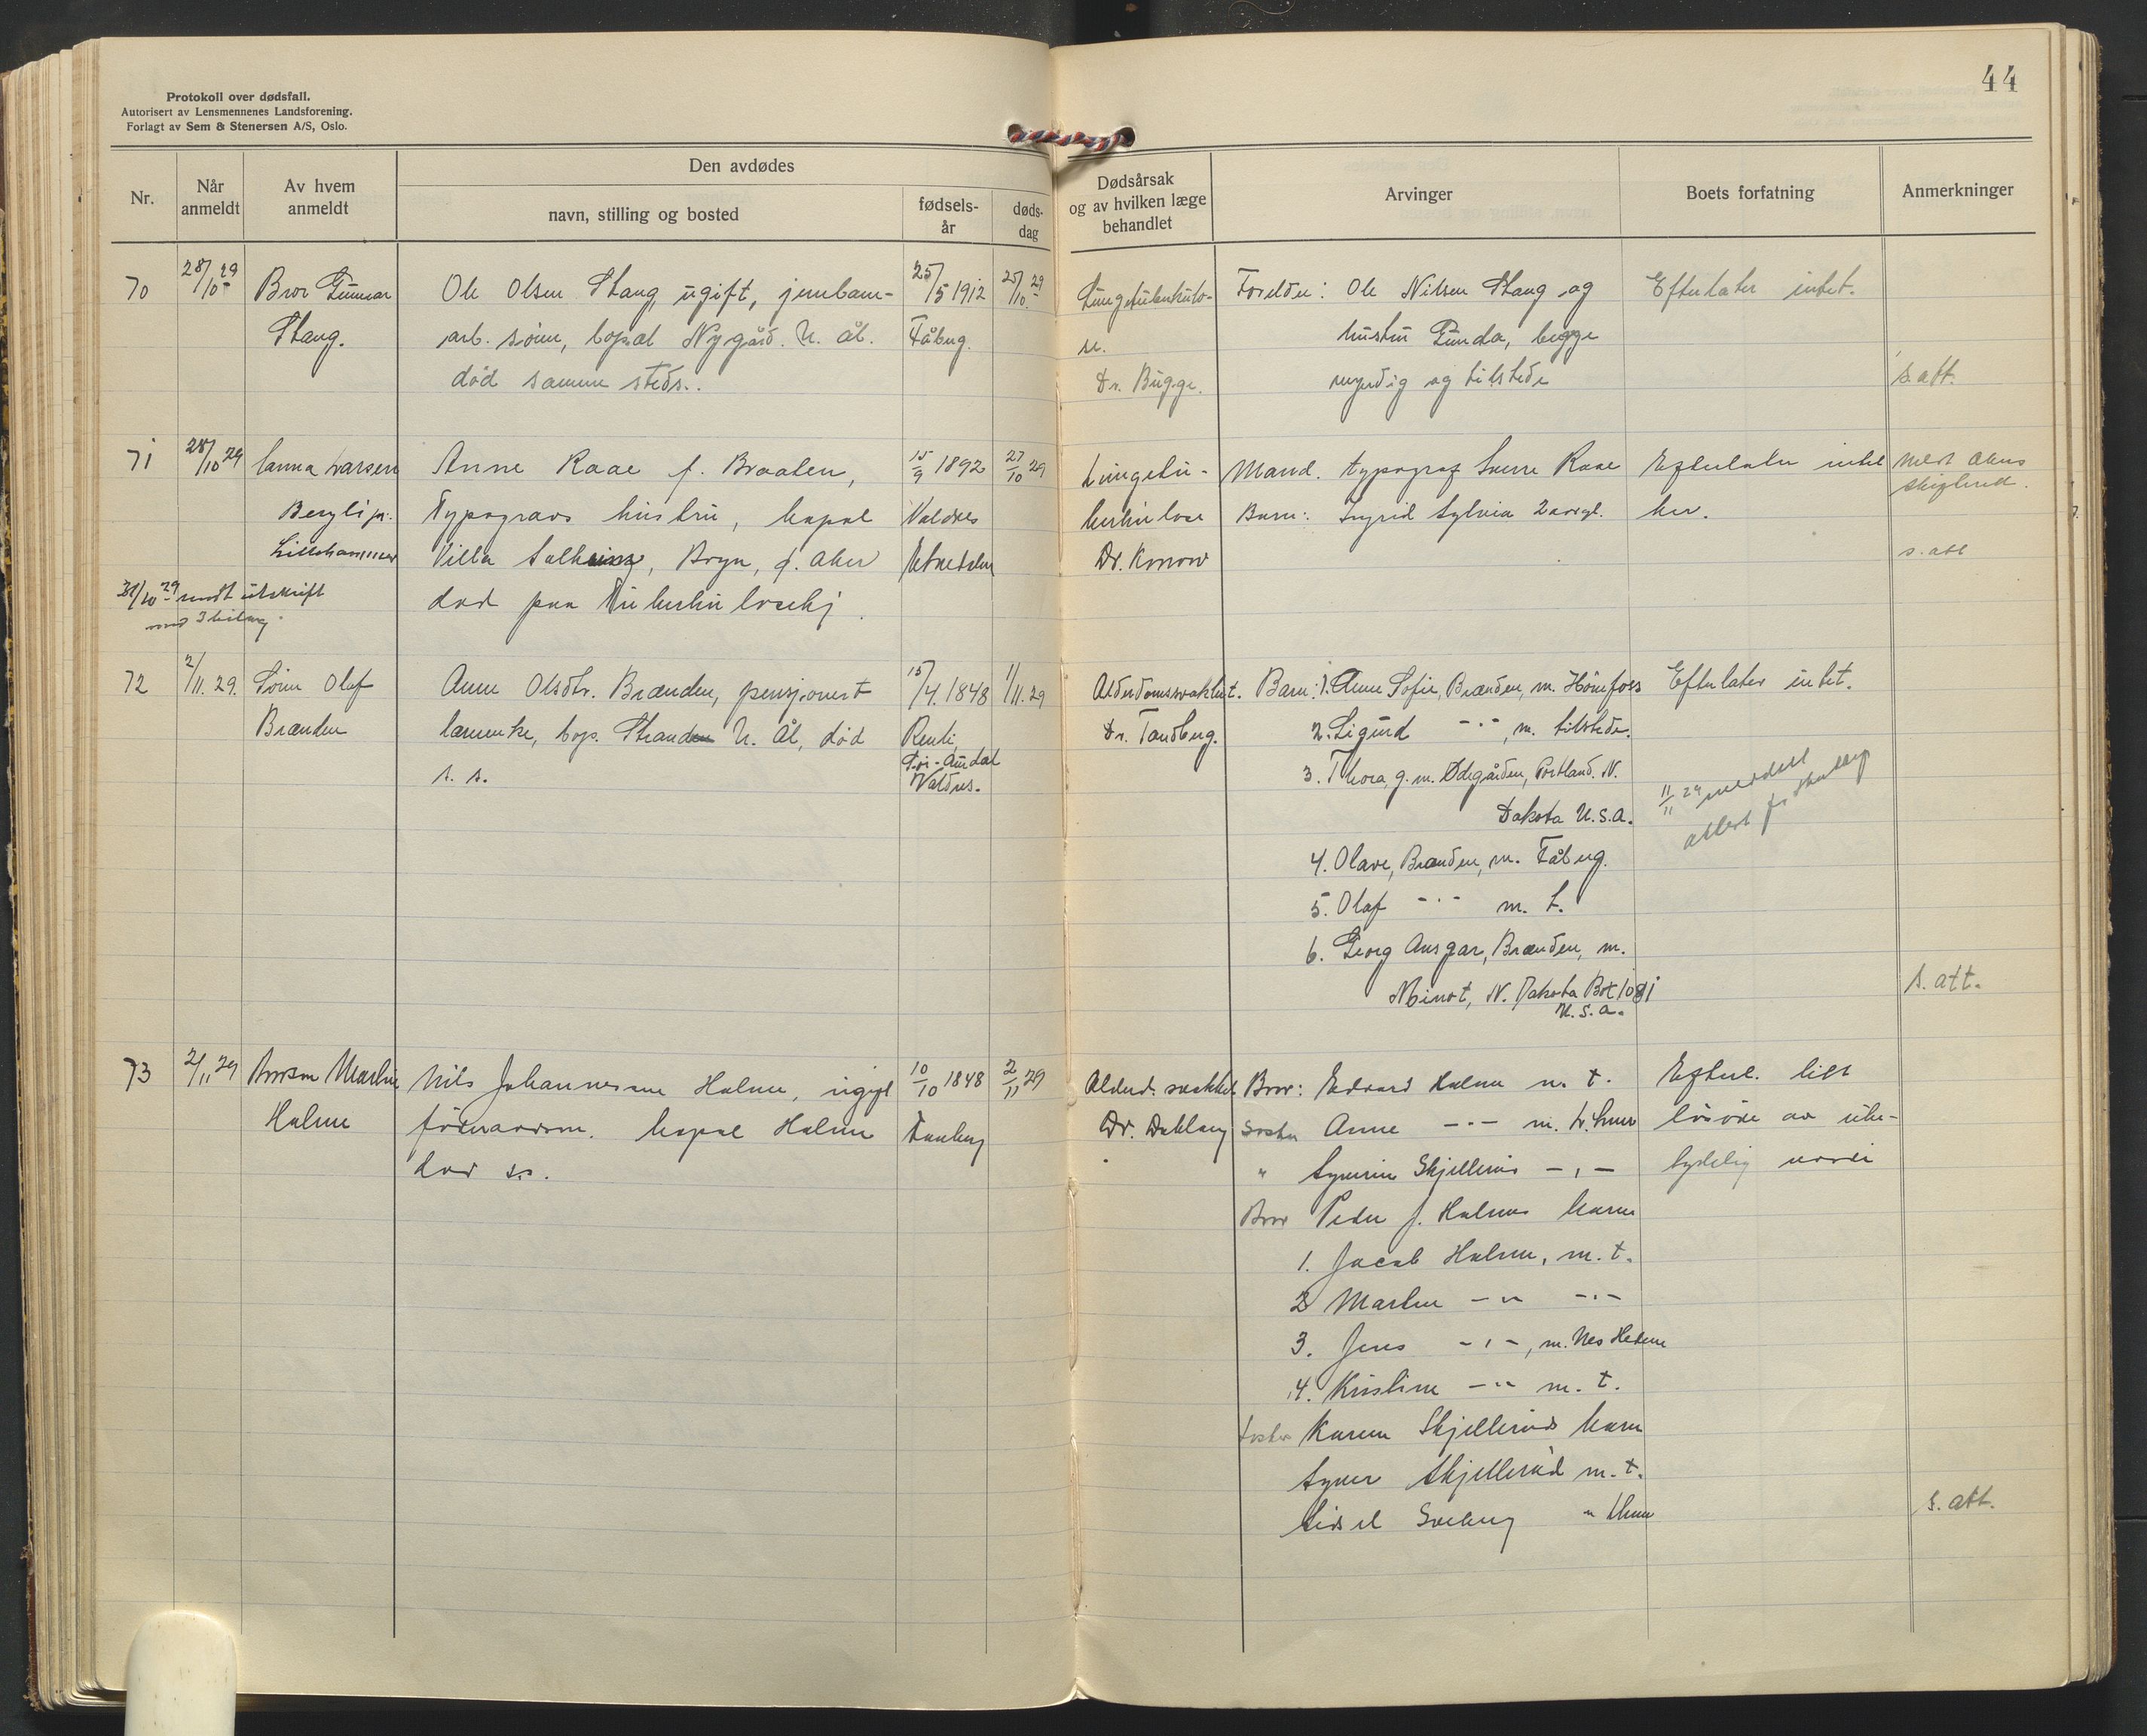 44
Protokoll over dødsfall.
Autorisert av Lensmennenes Landsforening.
Forlagt av Sem & Stenersen A/S, Oslo.
Nr.
Når anmeldt
Av hvem anmeldt
Den avdødes
navn, stilling og bosted
fødsels-år
døds-dag
Dødsårsak og av hvilken læge behandlet
Arvinger
Boets forfatning
Anmerkninger
70
28/10 29
Bror Gunnar
Stang.
Ole Olsen Stang ugift, jernbane-
arb. sønn, bopæl Nygård. N. Ål.
død samme steds.
25/5 1912
Fåbug.
25/10 29
Lungetuberkulo-
se.
Dr. Bugge.
Foreldre: Ole Nilsen Stang og
hustru Gunda, begge
myndig og tilstede
Efterlater intet.
s. att.
71
28/10 29
Larsen
Lillehammer
31/10 29 sendt utskrift
med 3 bilag.
Anne Raae f. Braaten,
Typografs hustru, bopæl
Villa, Bryn, Aker
død paa Tuberkulosehj.
15/9 1892
Valdres
Etnedalen
27/10 29
Lungetu-
berkulose
Dr. Konow
Mand. typograf Sverre Raae
Barn: Ingrid Sylvia 2 aar gl.
Efterlater intet
her.
Meldt Akers
skifterett.
s. att
72
2/11. 29.
Sønn Olaf
Brænden
Anne Olsdtr. Brænden, pensjonert
lærerinke, bop. Stranden N. Ål, død
s. s.
15/4. 1848
Renli,
Sør-Aurdal
Valdres.
1/11. 29
Alderdomssvakhet.
Dr. Tandberg.
Barn: 1. Anne Sofie, Brænden, m. Hønefoss
2. Sigurd -"-, m. tilstede.
3. Thora, g. m. Ødegården, Portland. N.
Dakota U.S.A.
4. Olave, Brænden, m. Fåbug.
5. Olaf -"- m. t.
6. Georg Ansgar, Brænden, m.
Minot, N. Dakota Box 1081
U.S.A.
Efterlater intet.
11/11 29 meddelt
attest
s. att.
73
2/11 29
Brorsøn Martin
Holme
Nils Johannessen Holme, ugift
bopæl Holme
død s.s.
10/10 1848
Faaberg
2/11 29
Alderd. svakhet
Dr. Dahlberg
Bror: Edvard Holme m. t.
Søster Anne -"- m. L.hmer
" Skjellerud -"-
Bror Peder J. Holmes barn
1. Jacob Holme, m. t.
2 Martin -"- -"-
3. Jens -"-, m. Nes Hedem
4. Kristine -"- m. t.
Søster Karen Skjelleruds barn
Skjellerud m. t.
Sidsel m Lhmr
Efterl. litt
løsøre av ube-
tydelig verdi
s. att.